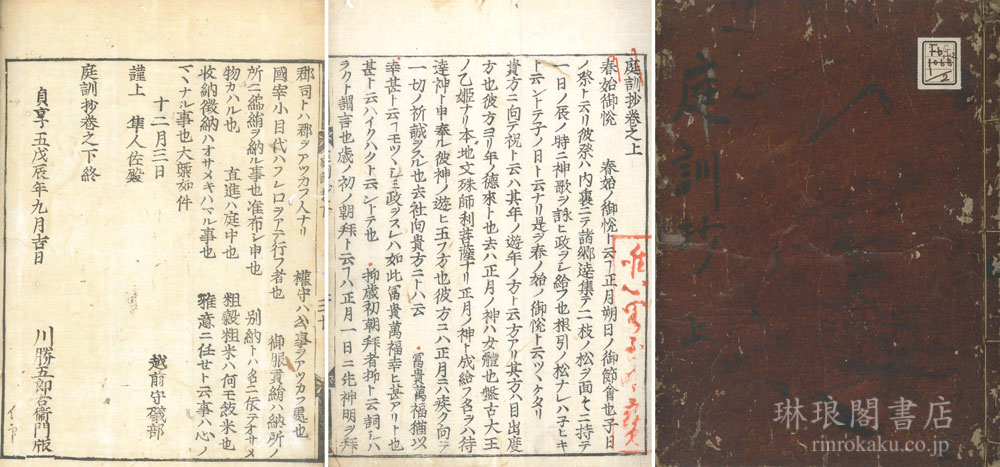 庭訓抄 上
庭訓抄卷之上
春始御悦 春始ノ御悦ト云フ正月朔日ノ御節會也子日
ノ祭ト云リ彼祭ハ内裏ニテ諸郷達集テ二枝ノ松ヲ面々ニ持テ
一日ノ辰ノ時ニ神歌ヲ詠ヒ政ヲシ給フ也根引ノ松ナレハ子ヒキ
ト云ントテ子ノ日ト云ナリ是ヲ春ノ始ノ御悦ト云ツヽケタリ
貴方ニ向テ祝ト云ハ其年ノ遊年ノ方ト云方アリ其方ハ目出度
方也彼方ヨリ年ノ德來ト也去ハ正月ノ神ハ女體也盤古大王
ノ乙姫ナリ本地文殊師利菩薩ナリ正月ノ神ト成給フ名ヲハ待
達神ト申奉ル彼神ノ遊ヒ玉フ方也彼方ニハ正月ヲ向テ
一切ノ祈誠ヲスル也去社向貴方ニトハ云 冨貴萬福猶以
幸甚ト云フモツヽシミ政ヲスレハ如此冨貴萬福幸ヒ甚アリト也
甚ト云ハイクハクト云ントテ也 抑歳初朝拜者抑ト云詞ハ
ラクト謂言也歳ノ初ノ朝拜ト云フハ正月一日ニ先神明ヲ拜
郡司トハ郡ヲアツカフ人ナリ 權守ハ公事ヲアツカフ處也
國宰小目代ハフレ口ヲアテ行フ者也 御服貢絹ハ納所ノ
所ニ綿絹ヲ納ル事也准布シ申也 別納トハ名ニ依テオサメ
物カハル也 直進ハ庭中也 粗穀粗米ハ何モ籾米也
收納徴納ハオサメキハマル事也 雅意ニ任セト云事ハ心ノ
マヽナル事也大槩如件
十二月三日 越前守礒部
謹上 隼人佐殿
庭訓抄卷之下終
貞享五戊辰年九月吉日 川勝五郎右衛門版
琳琅閣書店
rinrokaku.co.jp